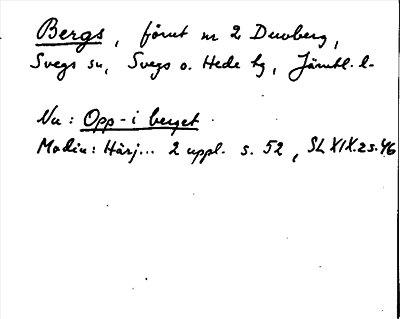 Bergs, förut nr 2 Duvberg,
Svegs sn, Svegs o. Hede tg, Jämtl. l.
Nu: Opp-i berget
Modin: Härj... 2 uppl. s. 52, SL XIX. 2 s. 46